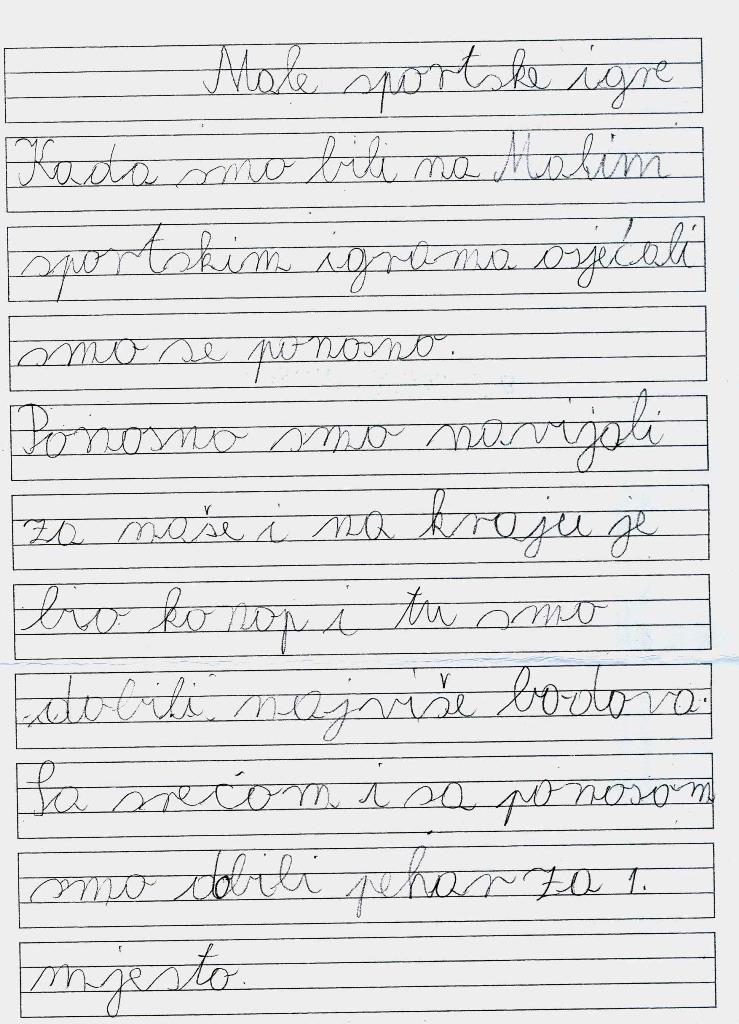 Male sportske igre
Kada smo bili na Malim
sportskim igrama osjećali
smo se ponosno.
Ponosno smo navijali
za naše i na kraju je
bio konop i tu smo
dobili najviše bodova.
Sa srećom i sa ponosom
smo dobili pehar za 1.
mjesto.